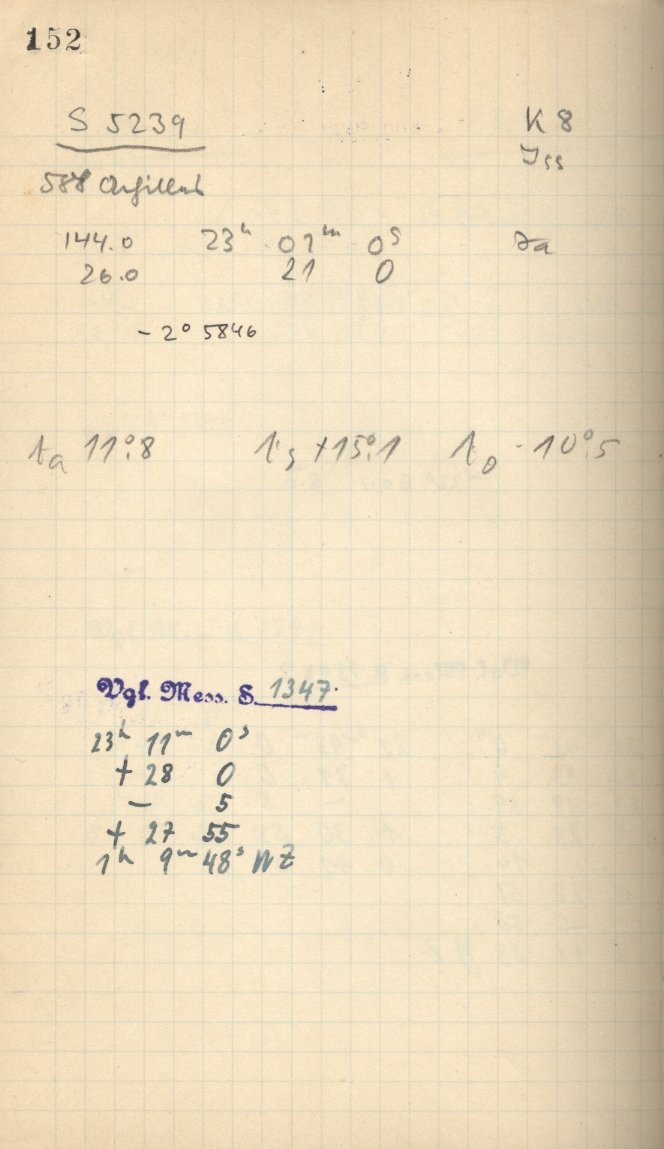 152
S 5239 K 8
588 Achilles Iss
144.0 23h 01m 0s Ja
26.0 21 0
- 2° 5846
ta 11°.8 ts +15°.1 to - 10°.5
Vgl. Mess. S. 1347.
23h 11m 0s
+ 28 0
- 5
+ 27 55
1h 9m 48s WZ